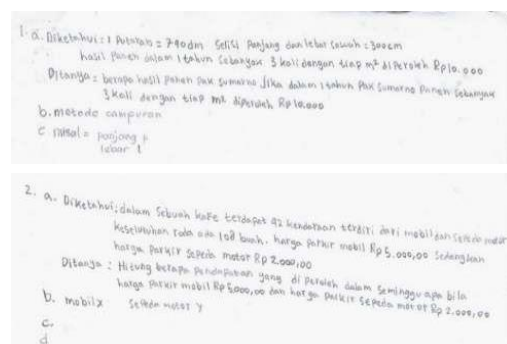 1. a. Diketahui : 1 Putaran = 740dm Selisi Panjang dan lebar sawah = 300cm
hasil panen dalam 1 tahun sebanyak 3 kali dengan tiap m² diperoleh Rp10.000
Ditanya : berapa hasil Panen Pak Sumarno Jika dalam 1 tahun Pak Sumarno Panen sebanyak
3 kali dengan tiap m² diperoleh Rp 10.000
b. metode campuran
c misal = panjang p
lebar l
2. a. Diketahui : dalam sebuah kafe terdapat 42 kendaraan terdiri dari mobil dan sepeda motor
keseluruhan roda ada 108 buah. harga parkir mobil Rp 5.000,00 sedangkan
harga parkir sepeda motor Rp 2.000,00
Ditanya : Hitung berapa Pendapatan yang di peroleh dalam seminggu apa bila
harga parkir mobil Rp 5.000,00 dan harga parkir sepeda motor Rp 2.000,00
b. mobil x sepeda motor y
c.
d